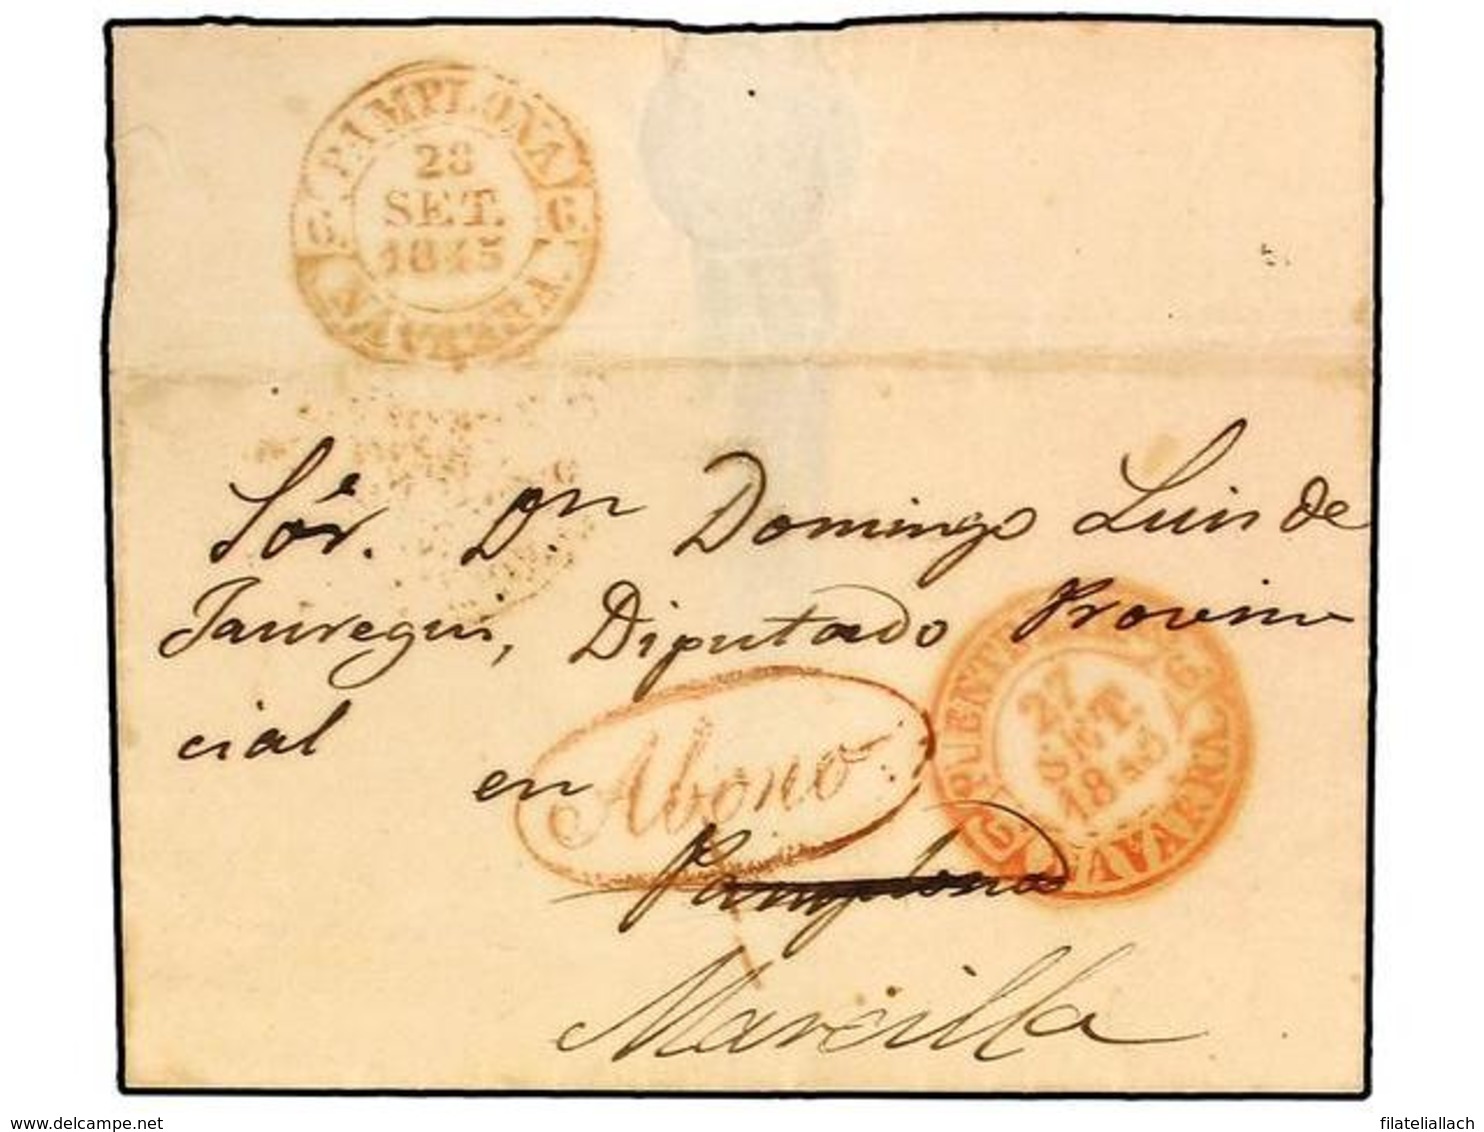 PAMPLONA
6. 6.
28
SET.
1845
NAVARRA.
Sôr. Dn Domingo Luis de
Jauregui, Diputado Provin
cial
en
Abono
Pamplona
Marcilla
PUENTE
27
SET.
1845
NAVARRA
delcampe.net
filateliallach